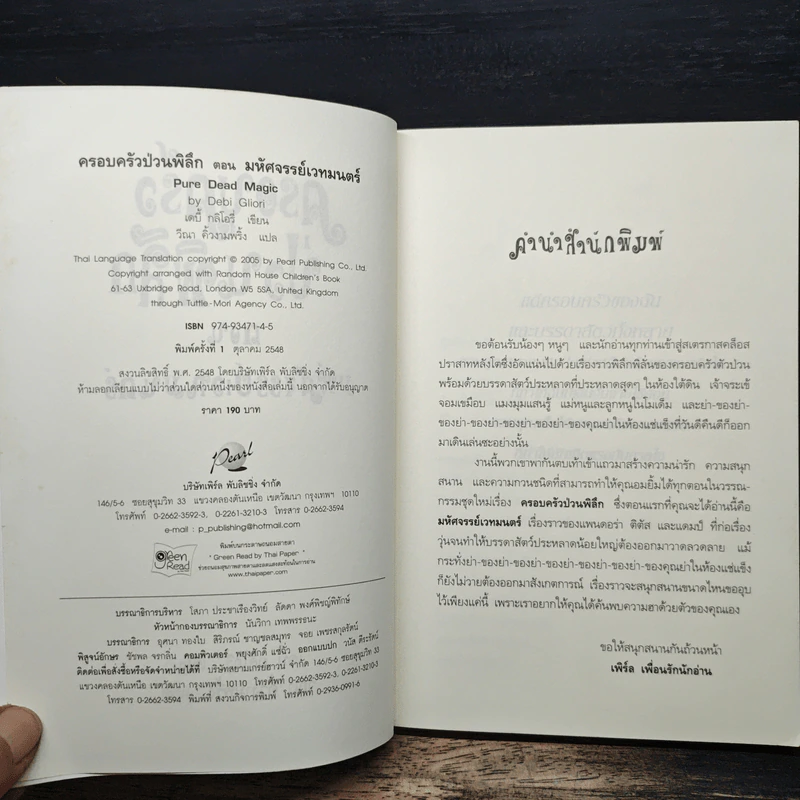 ครอบครัวป่วนพิลึก ตอน มหัศจรรย์เวทมนตร์
Pure Dead Magic
by Debi Gliori
เดบี้ กลิโอรี่ เขียน
วีณา คิ้วงามพริ้ง แปล
Thai Language Translation copyright © 2005 by Pearl Publishing Co., Ltd.
Copyright arranged with Random House Children's Book
61-63 Uxbridge Road, London W5 5SA, United Kingdom
through Tuttle-Mori Agency Co., Ltd.
ISBN 974-93471-4-5
พิมพ์ครั้งที่ 1 ตุลาคม 2548
สงวนลิขสิทธิ์ พ.ศ. 2548 โดยบริษัทเพิร์ล พับลิชชิ่ง จำกัด
ห้ามลอกเลียนแบบไม่ว่าส่วนใดส่วนหนึ่งของหนังสือเล่มนี้ นอกจากได้รับอนุญาต
ราคา 190 บาท
Pearl
บริษัทเพิร์ล พับลิชชิ่ง จำกัด
146/5-6 ซอยสุขุมวิท 33 แขวงคลองตันเหนือ เขตวัฒนา กรุงเทพฯ 10110
โทรศัพท์ 0-2662-3592-3, 0-2261-3210-3 โทรสาร 0-2662-3594
e-mail : p_publishing@hotmail.com
Green Read
พิมพ์บนกระดาษถนอมสายตา
"Green Read by Thai Paper"
ช่วยถนอมสุขภาพสายตาและลดแสงสะท้อนในการอ่าน
www.thaipaper.com
บรรณาธิการบริหาร โสภา ประชาเรืองวิทย์ ลัดดา พงศ์พิชญ์พิทักษ์
หัวหน้ากองบรรณาธิการ นันวิภา เทพพรรธนะ
บรรณาธิการ อุศนา ทองใบ สิริภรณ์ ชาญชลสมุทร จอย เพชรสกุลรัตน์
พิสูจน์อักษร ชัชพล จรกลิ่น คอมพิวเตอร์ พยุงศักดิ์ แซ่ฉั่ว ออกแบบปก วนัส ตีระรัตน์
ติดต่อเพื่อสั่งซื้อหรือจัดจำหน่ายได้ที่ บริษัทสยามเกรย์ฮาวน์ จำกัด 146/5-6 ซอยสุขุมวิท 33
แขวงคลองตันเหนือ เขตวัฒนา กรุงเทพฯ 10110 โทรศัพท์ 0-2662-3592-3, 0-2261-3210-3
โทรสาร 0-2662-3594 พิมพ์ที่ สงวนกิจการพิมพ์ โทรศัพท์ 0-2936-0991-6
คำนำสำนักพิมพ์
ขอต้อนรับน้องๆ หนูๆ และนักอ่านทุกท่านเข้าสู่สเตรกาสคล็อส
ปราสาทหลังโตซึ่งอัดแน่นไปด้วยเรื่องราวพิลึกพิลั่นของครอบครัวตัวป่วน
พร้อมด้วยบรรดาสัตว์ประหลาดที่ประหลาดสุดๆ ในห้องใต้ดิน เจ้าจระเข้
จอมเขมือบ แมงมุมแสนรู้ แม่หนูและลูกหนูในโมเด็ม และย่า-ของย่า-
ของย่า-ของย่า-ของย่า-ของย่า-ของคุณย่าในห้องแช่แข็งที่วันดีคืนดีก็ออก
มาเดินเล่นซะอย่างนั้น
งานนี้พวกเขาพากันตบเท้าเข้าแถวมาสร้างความน่ารัก ความสนุก
สนาน และความกวนชนิดที่สามารถทำให้คุณอมยิ้มได้ทุกตอนในวรรณ-
กรรมชุดใหม่เรื่อง ครอบครัวป่วนพิลึก ซึ่งตอนแรกที่คุณจะได้อ่านนี้คือ
มหัศจรรย์เวทมนตร์ เรื่องราวของแพนดอร่า ติตัส และแดมป์ ที่ก่อเรื่อง
วุ่นจนทำให้บรรดาสัตว์ประหลาดน้อยใหญ่ต้องออกมาวาดลวดลาย แม้
กระทั่งย่า-ของย่า-ของย่า-ของย่า-ของย่า-ของย่า-ของคุณย่าในห้องแช่แข็ง
ก็ยังไม่วายต้องออกมาสังเกตการณ์ เรื่องราวจะสนุกสนานขนาดไหนขออุบ
ไว้เพียงแค่นี้ เพราะเราอยากให้คุณได้ค้นพบความฮาด้วยตัวของคุณเอง
ขอให้สนุกสนานกันถ้วนหน้า
เพิร์ล เพื่อนรักนักอ่าน